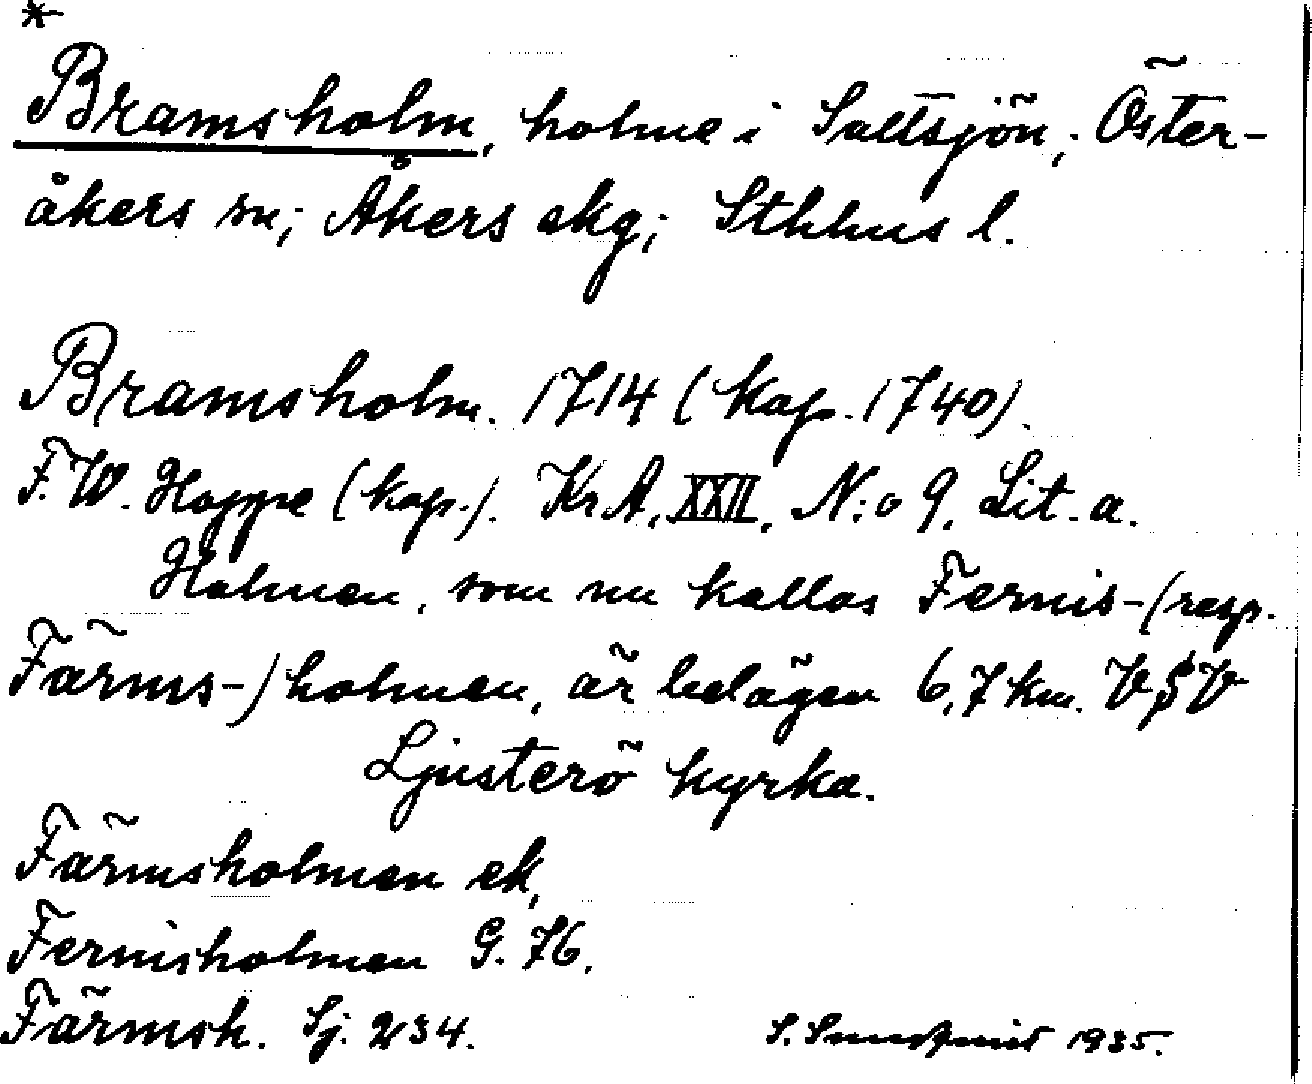 *
Bramsholm, holme i Saltsjön; Öster-
åkers sn; Åkers skg; Sthlms l.
Bramsholm. 1714 (kop. 1740).
F. W. Hoppe (kop.). KrA, XXII, N:o 9, Lit. a.
Holmen, som nu kallas Fernis-(resp.
Färms-)holmen, är belägen 6,7 km. VSV
Ljusterö kyrka.
Färmsholmen ek,
Fernisholmen G. 76.
Färmsh. Sj. 234.
S. Sundquist 1935.